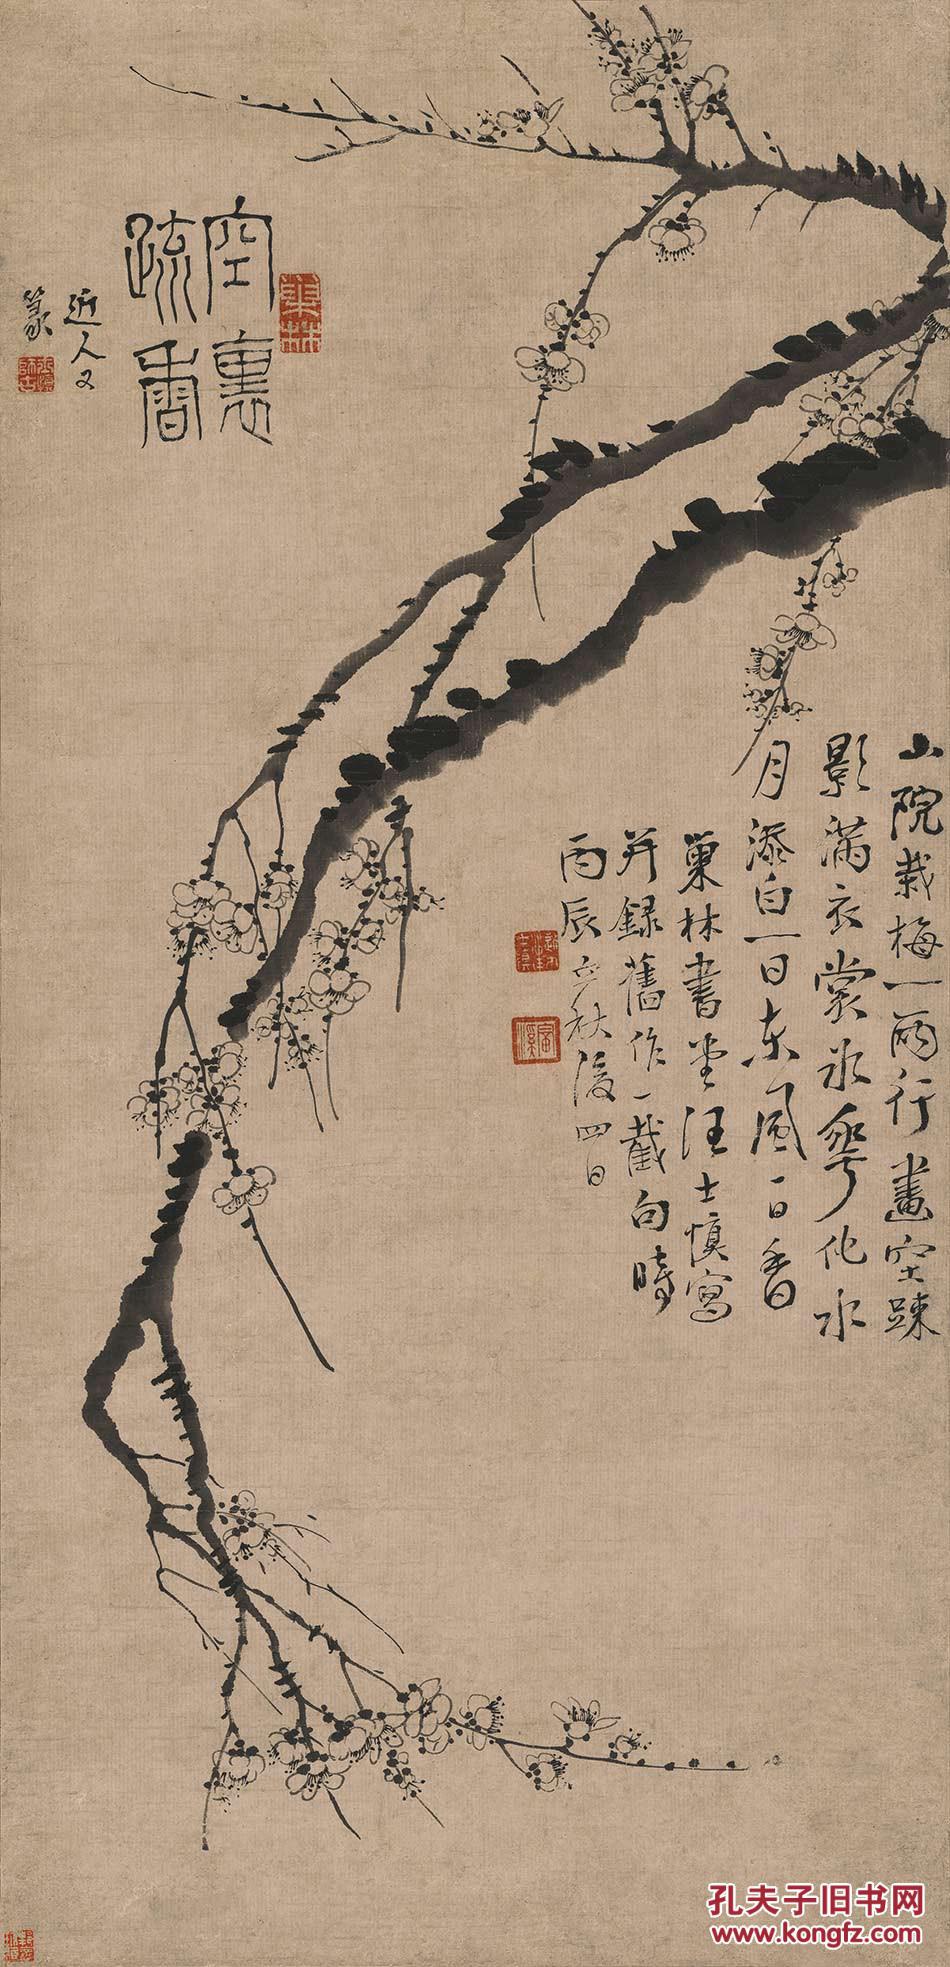 空裏
疏香
近人又
篆
巢林
山院栽梅一兩行畫空踈
影滿衣裳冰華化水
月添白一日東風一日香
巢林書堂汪士慎寫
并録舊作一截句時
丙辰立秋後四日
富溪
孔夫子旧书网
www.kongfz.com